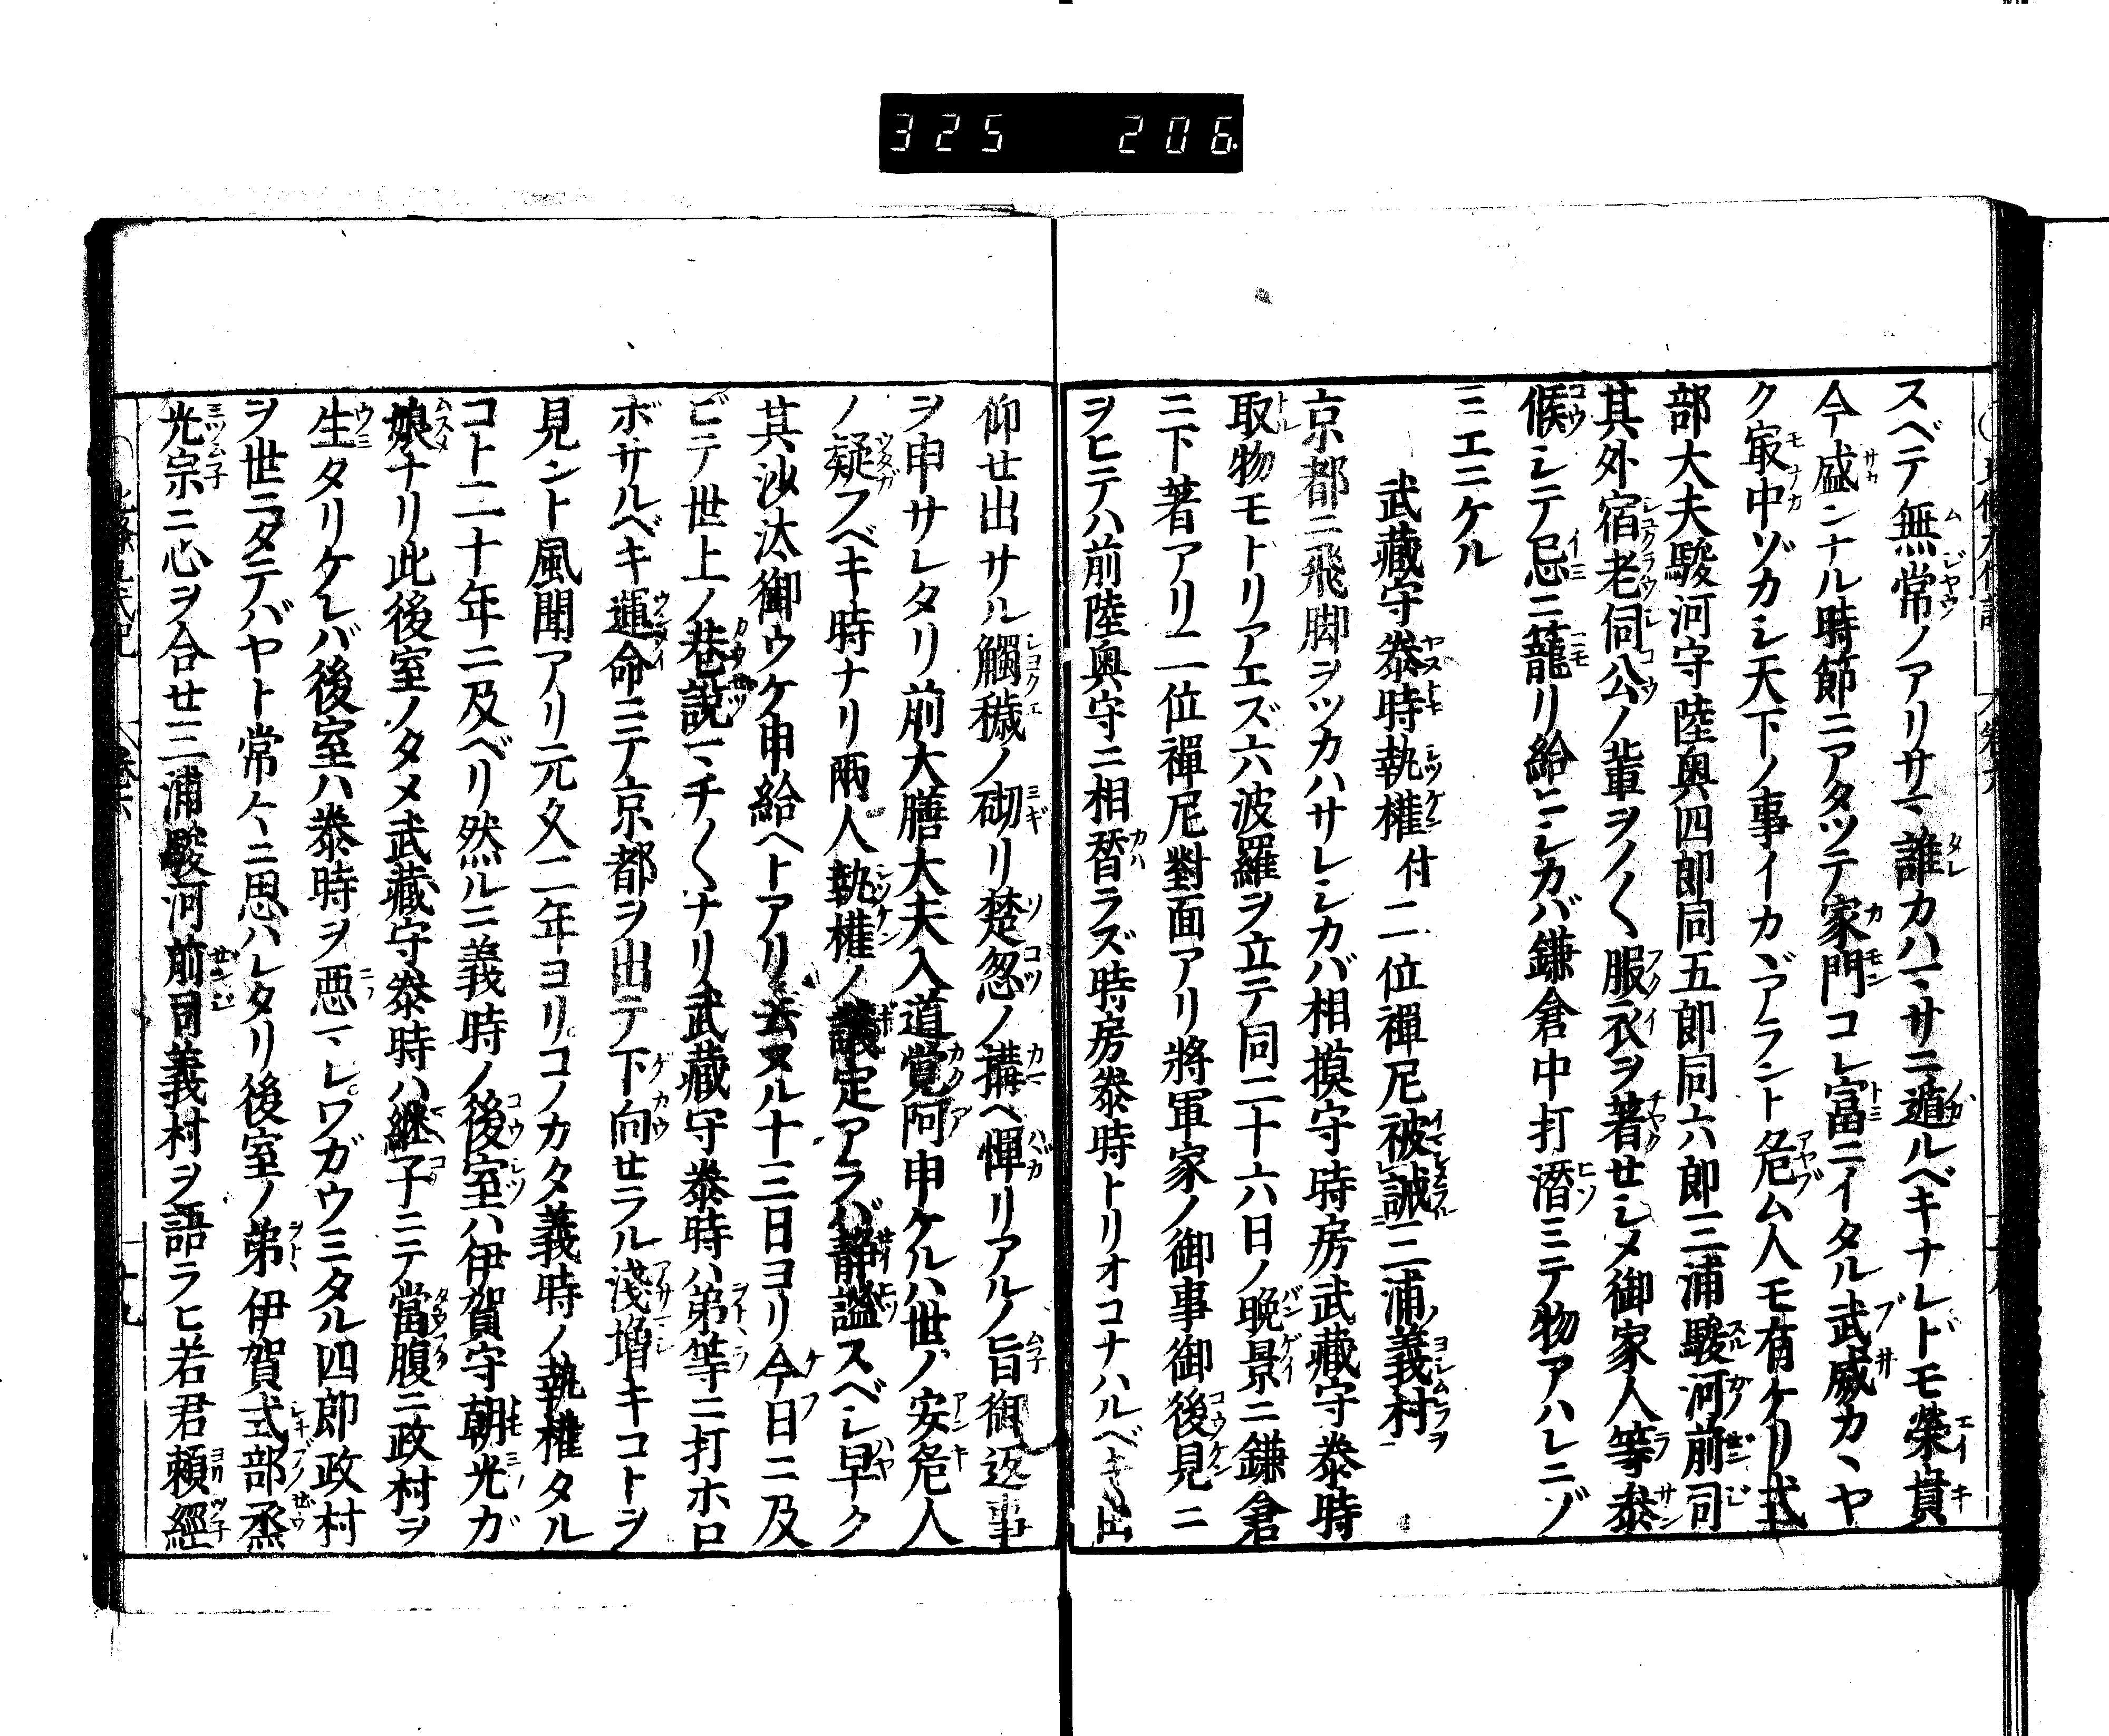 325 206
スベテ無常ノアリサマ誰カハマサニ遁ルベキナレドモ榮貴
今盛ンナル時節ニアタツテ家門コレ富ニイタル武威カヽヤ
ク最中ゾカシ天下ノ事イカヾアラント危ム人モ有ケリ式
部大夫駿河守陸奥四郎同五郎同六郎三浦駿河前司
其外宿老伺公ノ輩ヲノ〱服衣ヲ著セシメ御家人等參
候シテ忌ニ籠リ給ヒシカバ鎌倉中打潛ミテ物アハレニゾ
ミエニケル
武藏守泰時執權付二位禪尼被誡三浦義村
京都ニ飛脚ヲツカハサレシカバ相摸守時房武藏守泰時
取物モトリアエズ六波羅ヲ立テ同二十六日ノ晩景ニ鎌倉
ニ下著アリ二位禪尼對面アリ將軍家ノ御事御後見ニ
ヲヒテハ前陸奥守ニ相替ラズ時房泰時トリオコナハルベキ出
仰せ出サル觸穢ノ砌リ楚忽ノ搆ヘ憚リアルノ旨御返事
ヲ申サレタリ前大膳大夫入道覚阿申ケルハ世ノ安危人
ノ疑フベキ時ナリ兩人執權ノ議定アラバ靜謐スベシ早ク
其沙汰御ウケ申給ヘトアリ去ヌル十三日ヨリ今日ニ及
ビテ世上ノ巷説マチ〱ナリ武藏守泰時ハ弟等ニ打ホロ
ボサルベキ運命ニテ京都ヲ出テ下向せラル淺増キコトヲ
見ント風聞アリ元久二年ヨリコノカタ義時ノ執權タル
コト二十年ニ及ベリ然ルニ義時ノ後室ハ伊賀守朝光ガ
娘ナリ此後室ノタメ武藏守泰時ハ継子ニテ當腹ニ政村ヲ
生タリケレバ後室ハ泰時ヲ惡マレワガウミタル四郎政村
ヲ世ニタテバヤト常々ニ思ハレタリ後室ノ弟伊賀式部烝
光宗ニ心ヲ合せ三浦駿河前司義村ヲ語ラヒ若君頼經